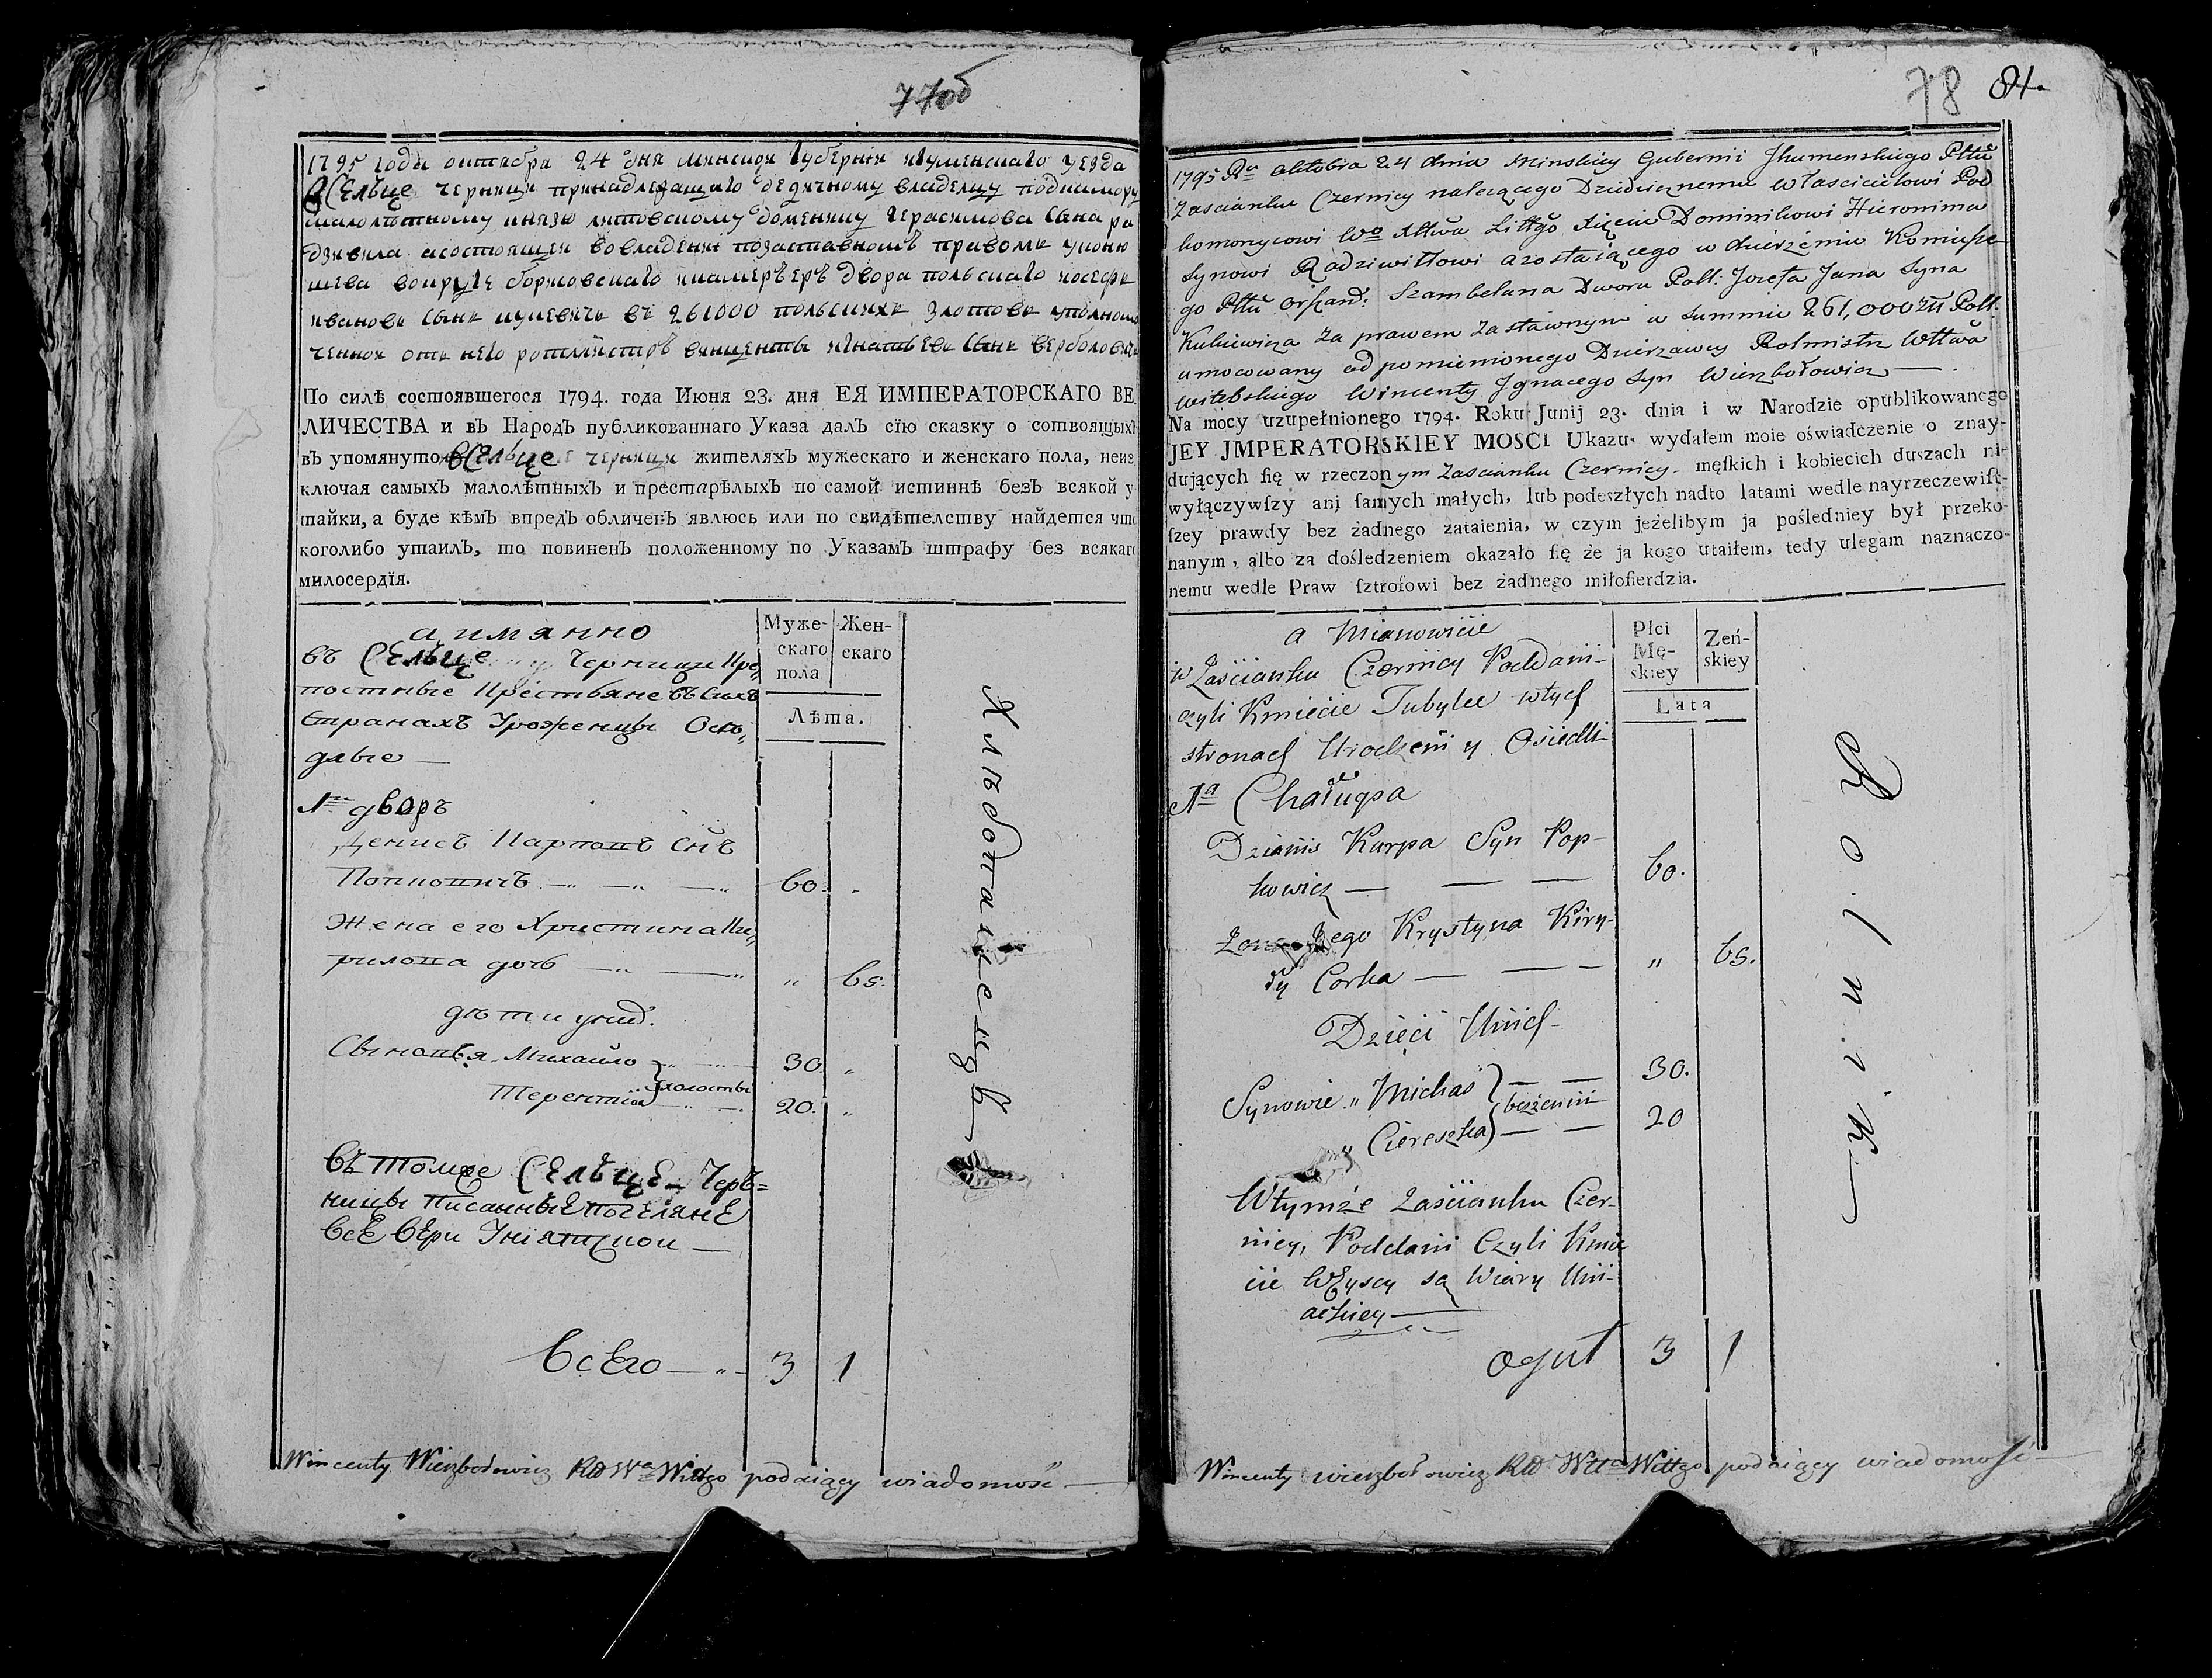 77об
1795 года октабра 24 дня минской губернїи игуменскаго уезда
Сельце черницы принадлежащаго дедичному владелцу подкамору
малолѣтному князю литовскому доменику Герасимова сына ра
дзивила асостоящей вовладенїи позаставномъ правомъ
вокруге камергеръ двора польскаго иосефъ
ивановъ сынъ въ 261000 польскихъ злотовъ уполномо
ченной отъ него ротмистръ винценты игнатьевъ сынъ верболовичъ
По силѣ состоявшегося 1794. года Июня 23. дня ЕЯ ИМПЕРАТОРСКАГО ВЕ
ЛИЧЕСТВА и въ Народъ публикованнаго Указа далъ сїю сказку о сотвоящыхъ
въ упомянутомъ Сельце черницы жителяхъ мужескаго и женскаго пола, неиз
ключая самыхъ малолѣтныхъ и престарѣлыхъ по самой истиннѣ безъ всякой у
тайки, а буде кѣмъ впредъ обличенъ явлюсь или по свидѣтелству найдется что
коголибо утаилъ, то повиненъ положенному по Указамъ штрафу без всякаго
милосердїя.
а имянно
Муже-
скаго
пола
Жен-
скаго
Лѣта.
въ Сельце Черницы Кре„
постные Крестьяне въ сихъ
Странахъ Уроженцы Осѣ„
длые —
1й дворъ
Денисъ Карповъ Снъ
Попковичъ 60.
Жена его Христина Ки„
рилова дочь „ 65.
дѣти унид.
Сыновья Михайло 30.
Терентїй холосты 20.
Въ томже Сельце Черъ=
ницы писанные поселяне
все вери Унїятской —
Всего 3 1
Хлѣбопашецъ
Wincenty Wierzbołowicz Rtt Wa Wittgo podaiący wiadomość
78 81.
1795 Ru oktobra 24 dnia Minskiey Gubernii Jhumenskiego Pttu
Zascianku Czernicy należącego Dziedzicznemu Włascicielowi Pod
komorycowi Wo Xttwa Littgo Xięciu Dominikowi Hieronima
Synowi Radziwiłłowi azostaiącego w dzierżeniu Koniusze
go Pttu Orszand: Szambelana Dworu Poll. Jozefa Jana Syna
Kulniewicza za prawem zastawnym w summie 261,000 złł Poll.
umocowany od pomienionego Dzierzawcy Rotmistrz Wttwa
witebskiego Wincenty Jgnacego Syn Wierzbołowicz —
Na mocy uzupełnionego 1794. Roku Junij 23. dnia i w Narodzie opublikowanego
JEY JMPERATORSKIEY MOSCI Ukazu. wydałem moie oświadczenie o znay-
dujących ſię w rzeczonym Zascianku Czernicy męſkich i kobiecich duszach ni-
wyłączywſzy anj ſamych małych, lub podeszłych nadto latami wedle nayrzeczewiſt-
ſzey prawdy bez żadnego zataienia, w czym jeżelibym ja poſledniey był przeko-
nanym, albo za dośledzeniem okazało ſię że ja kogo utaiłem, tedy ulegam naznaczo-
nemu wedle Praw ſztrofowi bez żadnego miłoſierdzia.
a Mianowicie
Płci
Mę-
skiey
Zeń-
skiey
Lata
w Zaścianku Czernicy Poddani-
czyli Kmiecie Tubylce wtych
stronach Urodzeni y Osiedli
1a Chałupa
Dzianis Karpa Syn Pop-
kowicz — 60.
Zona Jego Krystyna Kiry-
ły Corka — „ 65.
Dzieci Unich
Synowie „ Michaś bezzenni 30.
„ Ciereszka 20
Wtymże Zaścianku Czer-
nicy, Poddani Czyli Kmie
cie Wszyscy są Wiary Uni-
ackiey —
oguł 3 1
Rolnik
Wincenty wierzbołowicz Rtt Wtta Wittgo podaiący wiadomość